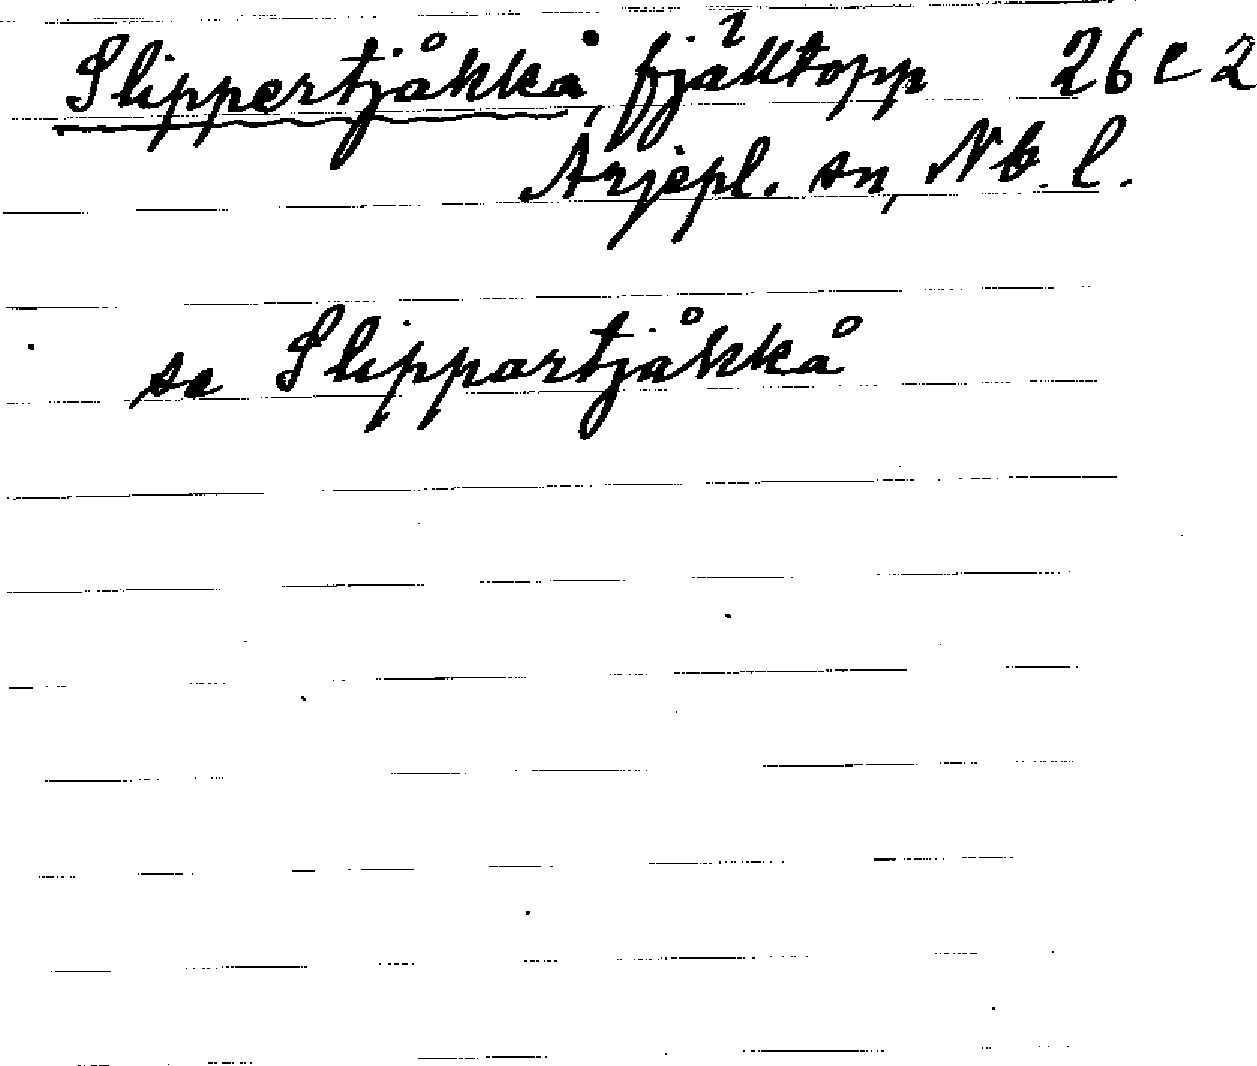 Slippertjåkkå, fjälltopp 26 e 2
Arjepl. sn, Nb. l.
se Slippartjåkkå